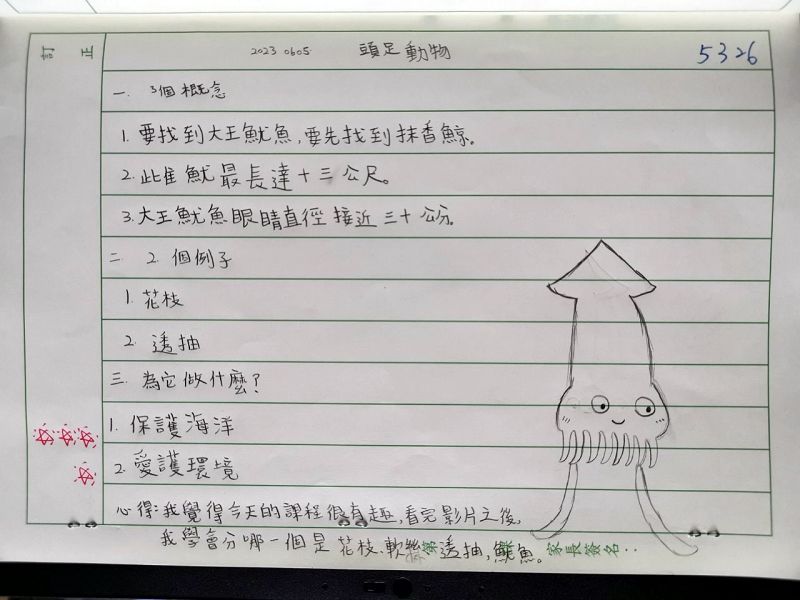 訂正
2023 0605 頭足動物 5326
一. 3個概念
1. 要找到大王魷魚,要先找到抹香鯨。
2. 此隹魷最長達十三公尺。
3. 大王魷魚眼睛直徑接近三十公分。
二 2. 個例子
1. 花枝
2. 透抽
三. 為它做什麼?
1. 保護海洋
2. 愛護環境
心得:我覺得今天的課程很有趣,看完影片之後,
我學會分哪一個是花枝、軟絲、透抽,魷魚。
第 家長簽名: